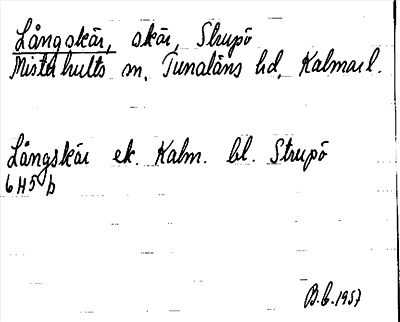 Långskär, skär, Strupö
Misterhults sn, Tunaläns hd, Kalmar l.
Långskär ek. Kalm. bl. Strupö
6H5b
B.C. 1957